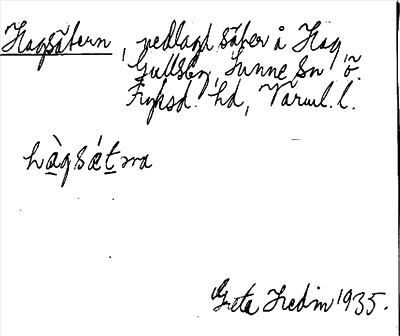 Hagsätern, nedlagd säter å Hag,
Gullsby, Sunne sn ö.
Fryksd. hd, Värml. l.
hàgsǽtṇa
Greta Hedin 1935.